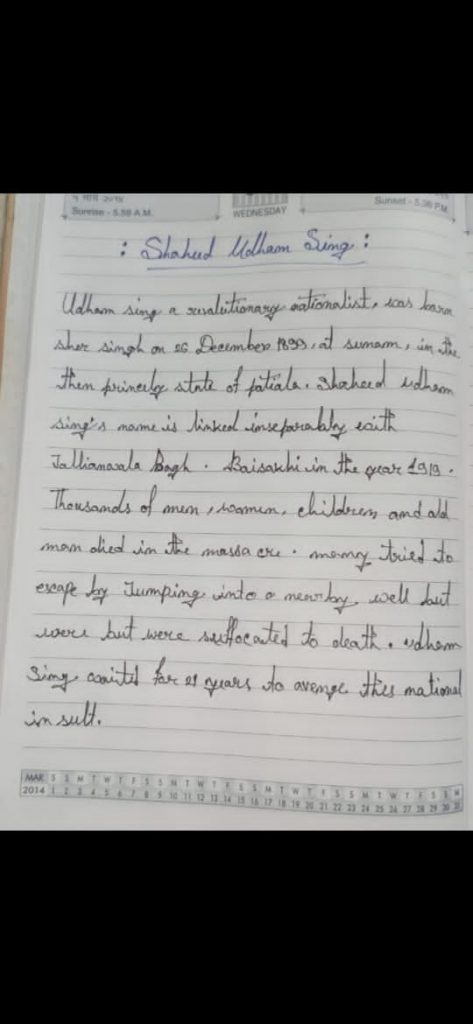 Sunrise - 5.59 A.M.
WEDNESDAY
Sunset - 5.36 PM
: Shaheed Udham Sing :
Udham sing a revalutionary nationalist, was barn
sher singh on 26 December 1899, at sunam, in the
then princely state of patiala. Shaheed udham
sing's name is linked inseparably with
Jallianwala Bagh. Baisakhi in the year 1919.
Thousands of men, women, children and old
man died in the massacre. many tried to
escape by Jumping into a nearby well but
were but were suffocated to death. udham
Sing waited for 21 years to avenge this national
in sult.
MAR S S M T W T F S S M T W T F S S M T W T F S S M T W T F S S M
2014 1 2 3 4 5 6 7 8 9 10 11 12 13 14 15 16 17 18 19 20 21 22 23 24 25 26 27 28 29 30 31